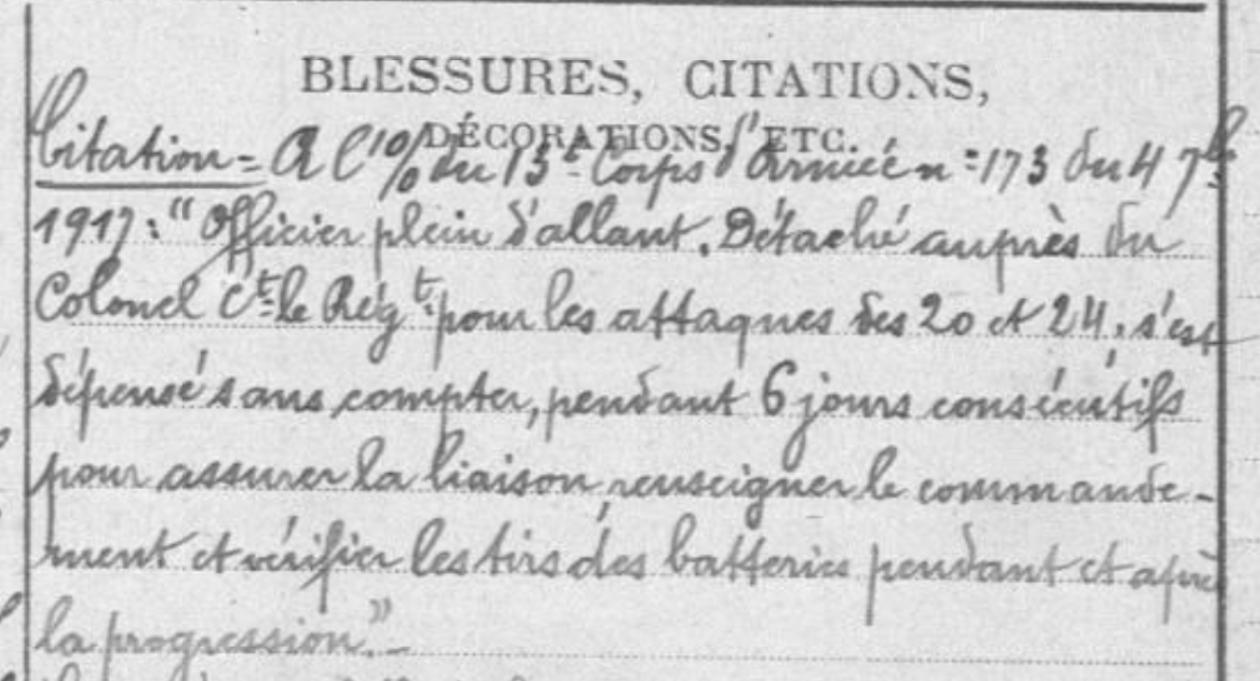 BLESSURES, CITATIONS,
DÉCORATIONS, ETC.
Citation = A l'o/o du 13e Corps d'Armée n° 173 du 4 7bre
1917 : "Officier plein d'allant. Détaché auprès du
Colonel Ct le Régt pour les attaques des 20 et 24, s'est
dépensé sans compter, pendant 6 jours consécutifs
pour assurer la liaison, renseigner le commande-
ment et vérifier les tirs des batteries pendant et après
la progression." -